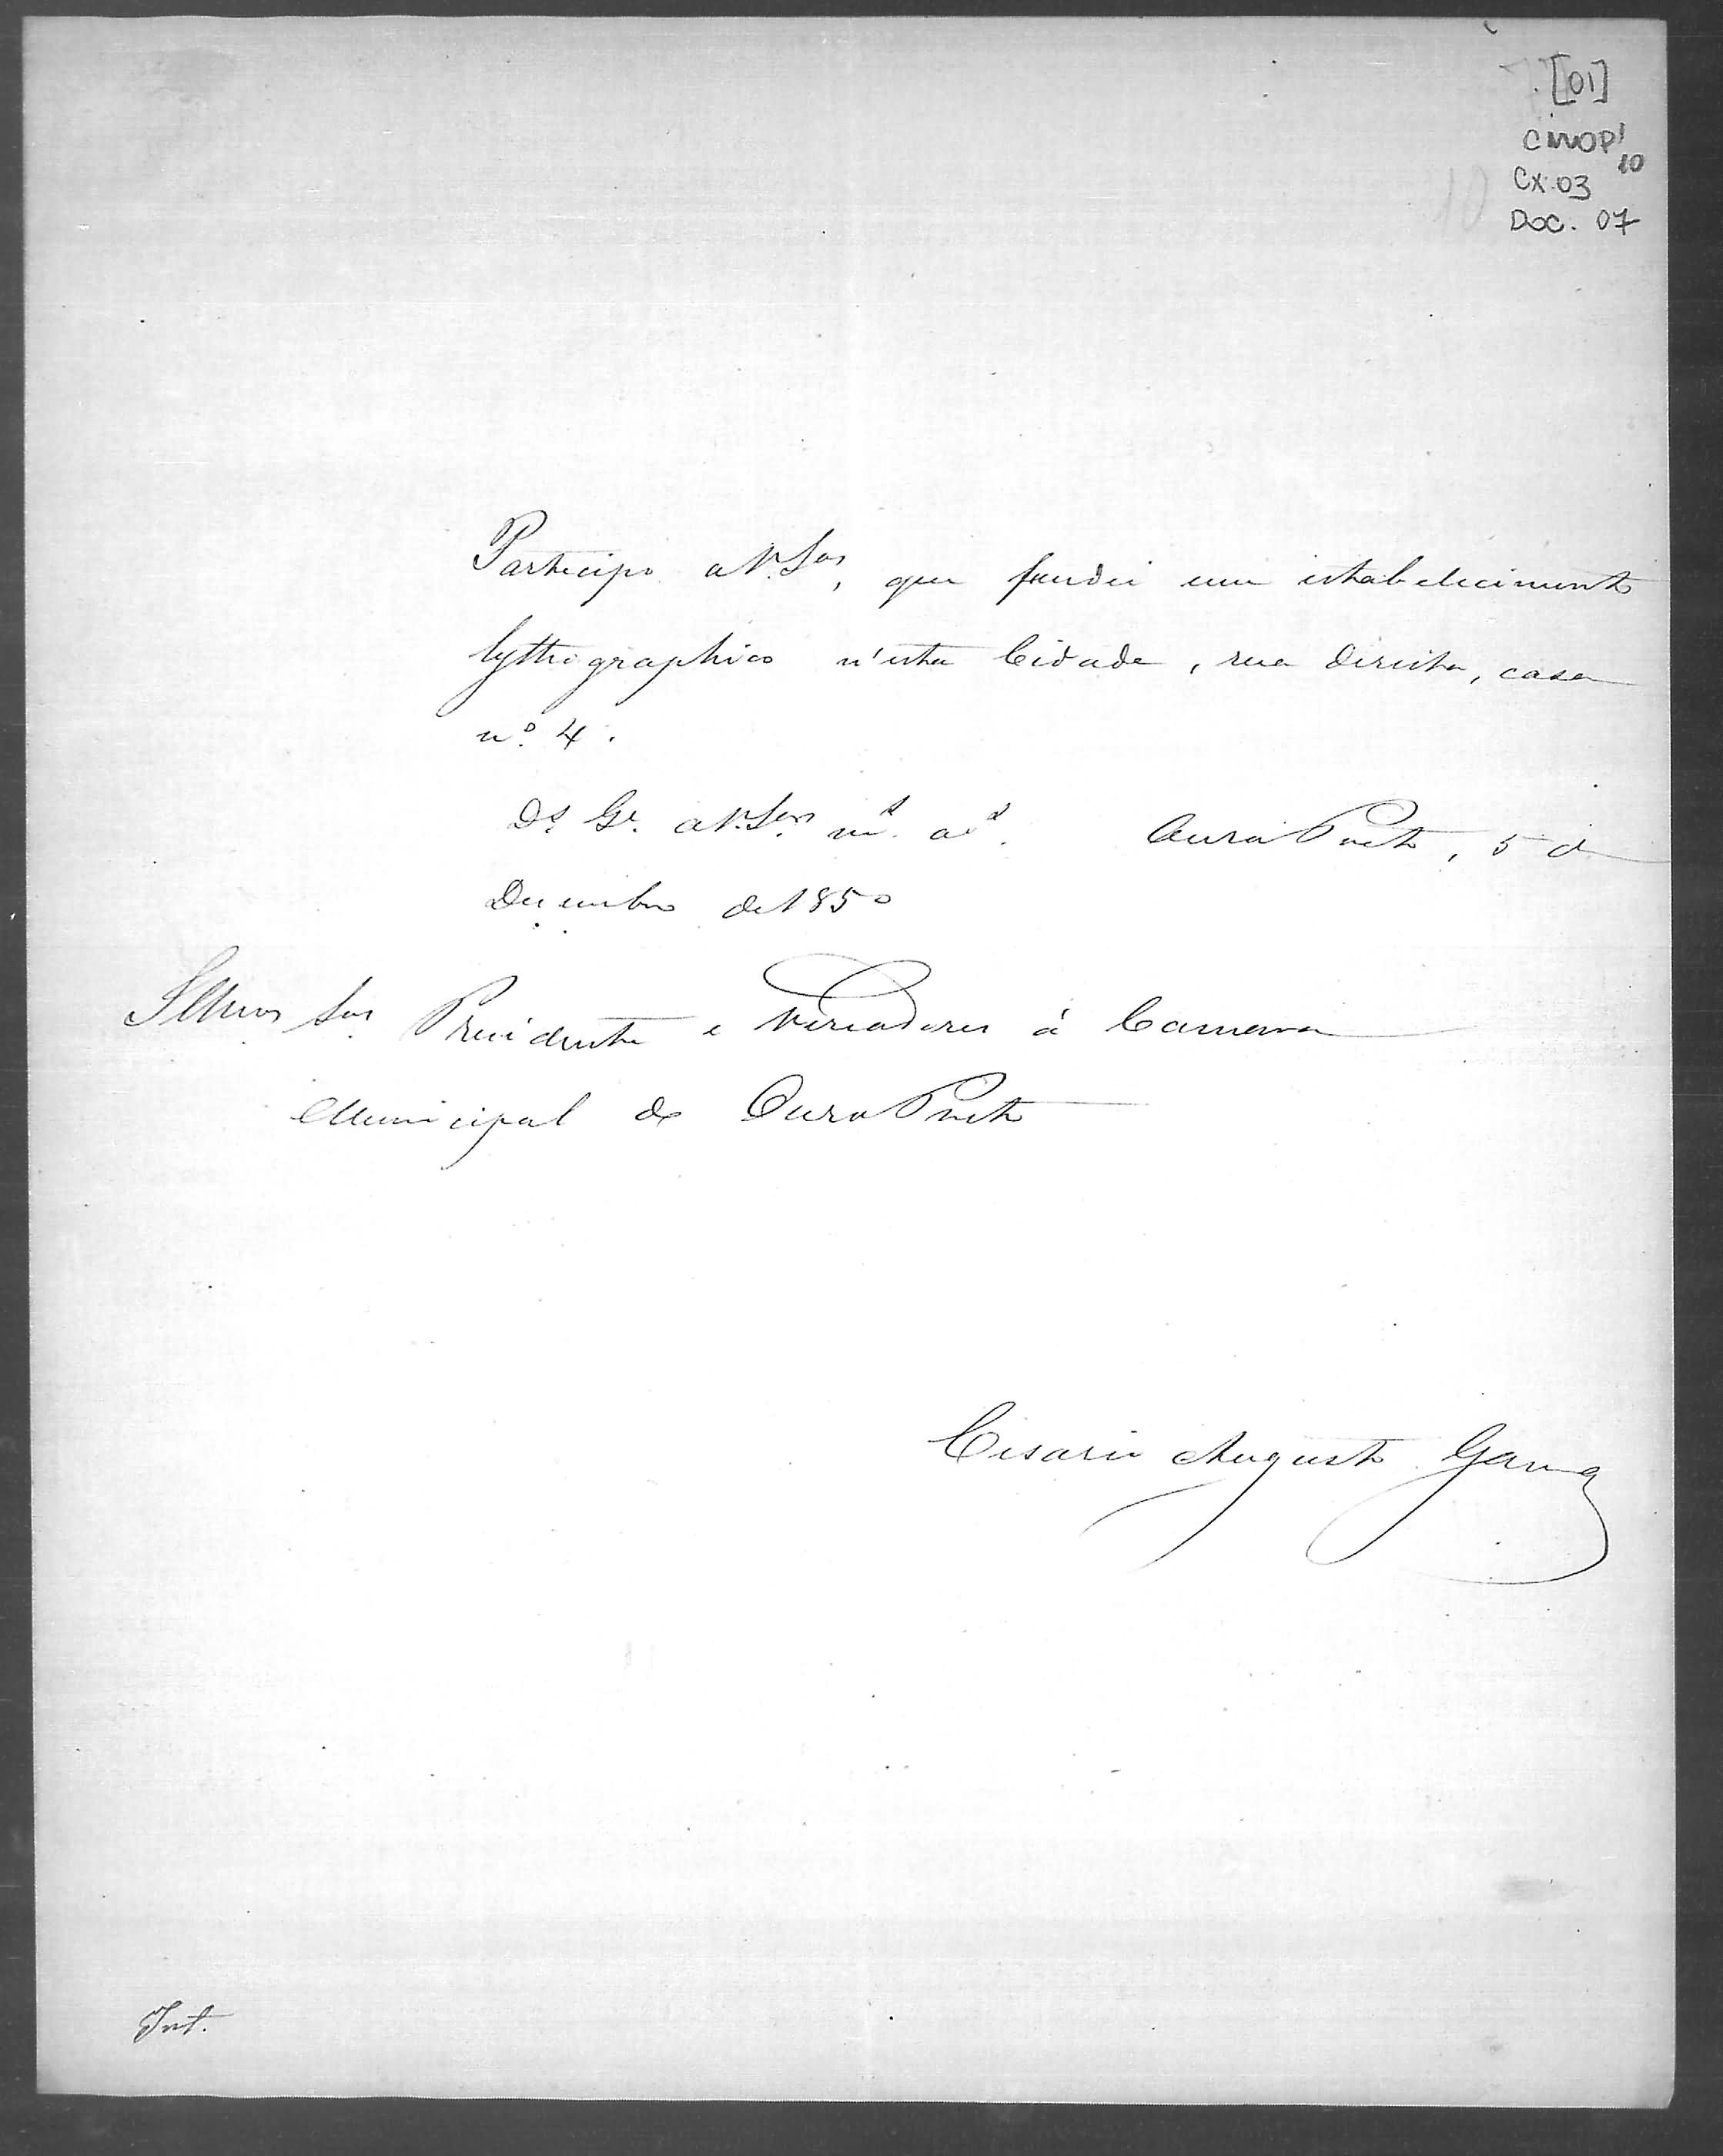 [01]
CMOP
10
Cx. 03
Doc. 07
Participo a V. Sas, que fundei um estabelecimento
lythographico n'esta Cidade, rua direita, casa
nº 4.
Ds. Ge. a V. Sas ms. as. Ouro Preto, 5 de
Dezembro de 1850
Illmos Srs Presidente e Vereadores á Camara
Municipal de Ouro Preto
Cesario Augusto Gama
Int.